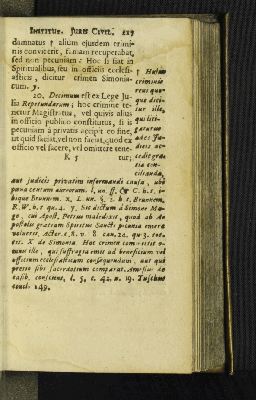 Institut. Juris Civil. 225
damnatus & alium ejusdem crimi-
nis convicerit, famam recuperabat,
sed non pecuniam: Hoc si fiat in
Spiritualibus, seu in officiis ecclesi-
asticis, dicitur crimen Simonia-
cum.
20. Decimum est ex Lege Ju-
lia Repetundarum; hoc crimine te-
netur Magistratus, vel quivis alius
in officio publico constitutus, si is
pecuniam à privatis accipit eo fine,
ut quid faciat, vel non faciat, quod ex
officio vel facere, vel omittere tene-
K 5 tur;
Hujus
criminis
reus quo-
que dici-
tur ille,
qui liti-
gaturus
ades Ju-
dicis ac-
cedit
conciliandi,
aut judicis privatim informandi causa, sub
pœna centum aureorum. l. un. ff. & C. h. t. i-
bique Brunnem. x. L. un. §. 2. h. t. Brunnem.
Sic dictum à Simone Ma-
go, cui Apost. Petrus maledixit, quod ab A-
postolis gratiam Spiritus Sancti pecunia emere
voluerit, Actor. c. 8. v. 8. can. 20. qu. 3. tot.
tit. X de Simonia Hoc crimen committit o-
mnis ille, qui suffragia emit ad beneficium vel
officium ecclesiasticum consequendum, aut quo
pretio sibi sacerdotium comparat.
casib. conscient. l. 5. c. 42. n. 19.
concl. 149.